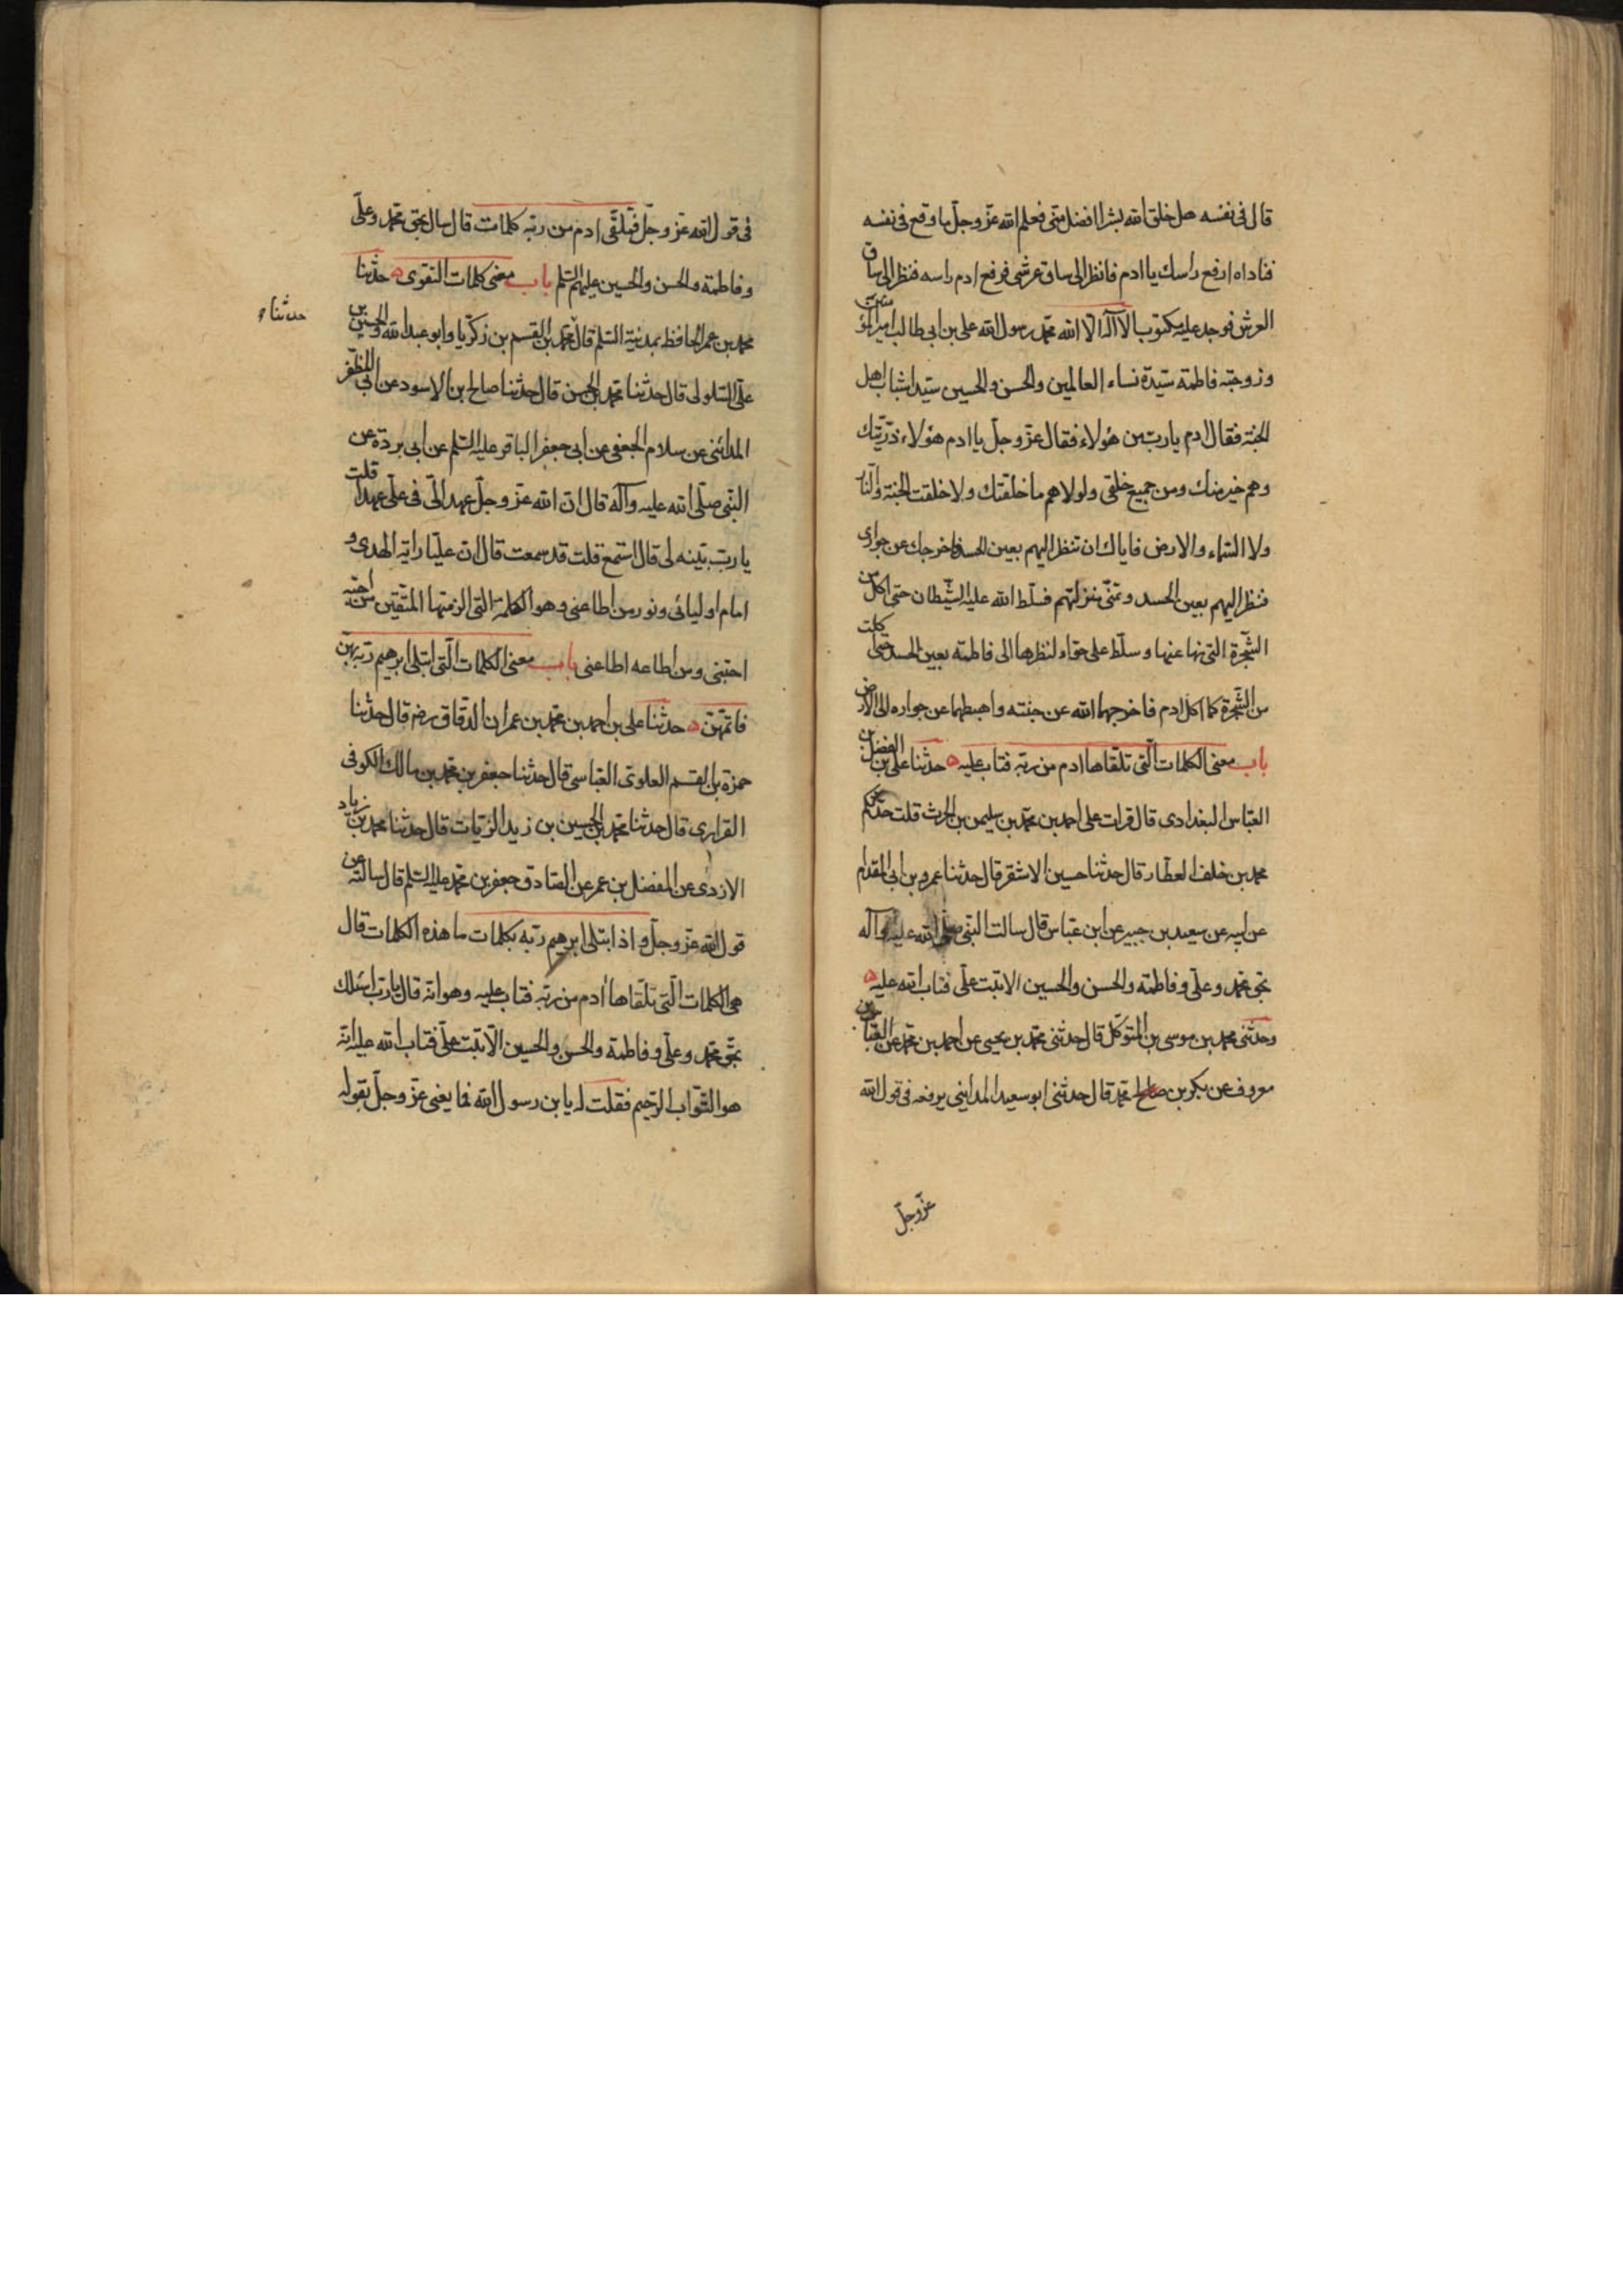 قال فى نفسه هل خلق الله بشرا افضل منى فعلم الله عزّ وجلّ ما وقع فى نفسه
فناداه ارفع راسك يا ادم فانظر الى ساق عرشى فرفع ادم راسه فنظر الى ساق
العرش فوجد عليه مكتوب لا آله الا الله محمّد رسول الله على بن ابى طالب امير المؤمنين
وزوجته فاطمة سيّدة نساء العالمين والحسن والحسين سيّدا شباب اهل
الجنة فقال ادم يا ربّ من هؤلاء فقال عزّ وجلّ يا ادم هؤلاء ذرّيتك
وهم خير منك ومن جميع خلقى ولولاهم ما خلقتك ولا خلقت الجنة والنّار
ولا السّماء والارض فاياك ان تنظر اليهم بعين الحسد فاخرجك عن جوارى
فنظر اليهم بعين الحسد وتمنّى منزلتهم فسلّط الله عليه الشّيطان حتى اكل من
الشّجرة التى نهى عنها وسلّط على حوّاء لنظرها الى فاطمة بعين الحسد حتّى اكلت
من الشّجرة كما اكل ادم فاخرجهما الله عن جنته واهبطهما عن جواره الى الارض
باب معنى الكلمات الّتى تلقّاها ادم من ربّه فتاب عليه ه حدثنا على بن الفضل بن
العبّاس البغدادى قال قرات على احمد بن محمّد بن سليمن بن الحرث قلت حدّثكم
محمد بن خلف العطار قال حدثنا حسين الاشقر قال حدثنا عمرو بن ابى المقدام
عن ابيه عن سعيد بن جبير عن ابن عبّاس قال سالت النبّى صلى الله عليه وآله
بحق محمّد وعلّى وفاطمة والحسن والحسين الا تبت علّى فتاب الله عليه ه
وحدثنى محمد بن موسى بن المتوكّل قال حدثنى محمّد بن يحيى عن احمد بن محمّد عن العبّاس بن
معروف عن بكر بن محمّد قال حدثنى ابو سعيد المداينى يرفعه فى قول الله
عزّ وجلّ
فى قول الله عزّ وجلّ فتلقّى ادم من ربّه كلمات قال سال بحق محمّد وعلّى
وفاطمة والحسن والحسين عليهم السّلم باب معنى كلمات التقوى ه حدثنا
حدثناه
محمد بن عمر الحافظ بمدينة السّلم قال محمّد بن القسم بن زكرّيا وابو عبد الله الحسين بن
علّى السّلولى قال حدثنا محمّد بن الحسن قال حدثنا صالح بن الاسود عن ابى المظفّر
المدائنى عن سلام الجعفى عن ابى جعفر الباقر عليه السّلم عن ابى بردة عن
النبّى صلّى الله عليه وآله قال ان الله عزّ وجلّ عهد الىّ فى علّى عهدا قلت
يا ربّ بيّنه لى قال استمع قلت قد سمعت قال ان عليّا راية الهدى و
امام اوليائى ونور من اطاعنى وهو الكلمة التى الزمتها المتّقين من احبّه
احبّنى ومن اطاعه اطاعنى باب معنى الكلمات الّتى ابتلى ابرهيم ربّه بهنّ
فاتمّهنّ ه حدثنا على بن احمد بن محمّد بن عمران الدقاق رضه قال حدثنا
حمزة بن القسم العلوى العبّاسى قال حدثنا جعفر بن محمّد بن مالك الكوفى
الفزارى قال حدثنا محمّد بن الحسين بن زيد الزيّات قال حدثنا محمد بن زياد
الازدى عن المفضل بن عمر عن الصّادق جعفر بن محمّد عليه السّلم قال سالته عن
قول الله عزّ وجلّ واذ ابتلى ابرهيم ربّه بكلمات ما هذه الكلمات قال
هى الكلمات الّتى تلقّاها ادم من ربّه فتاب عليه وهو انه قال يا ربّ اسئلك
بحقّ محمّد وعلّى وفاطمة والحسن والحسين الّا تبت علّى فتاب الله عليه انّه
هو التّواب الرّحيم فقلت له يا بن رسول الله فما يعنى عزّ وجلّ بقوله